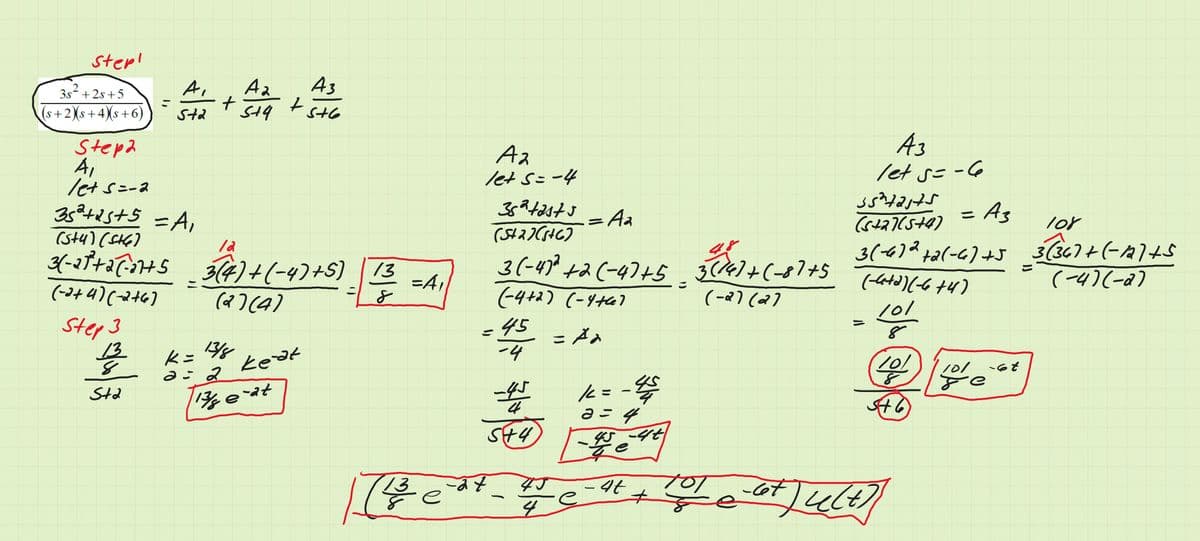 Step 1
(3s² + 2s + 5)/((s+2)(s+4)(s+6)) = A₁/(s+2) + A₂/(s+4) + A₃/(s+6)
Step 2
A₁
let s = -2
(3s²+2s+5)/((s+4)(s+6)) = A₁
12
(3(-2)²+2(-2)+5)/((-2+4)(-2+6)) = (3(4)+(-4)+5)/((2)(4)) = 13/8 = A₁
Step 3
(13/8)/(s+2)
k = 13/8
a = 2
ke^-at
13/8 e^-2t
A₂
let s = -4
(3s²+2s+5)/((s+2)(s+6)) = A₂
48
(3(-4)²+2(-4)+5)/((-4+2)(-4+6)) = (3(16)+(-8)+5)/((-2)(2))
= 45/-4 = A₂
(-45/4)/(s+4)
k = -45/4
a = 4
-45/4 e^-4t
A₃
let s = -6
(3s²+2s+5)/((s+2)(s+4)) = A₃
108
(3(-6)²+2(-6)+5)/((-6+2)(-6+4)) = (3(36)+(-12)+5)/((-4)(-2))
= 101/8
(101/8)/(s+6)
101/8 e^-6t
(13/8 e^-2t - 45/4 e^-4t + 101/8 e^-6t) u(t)